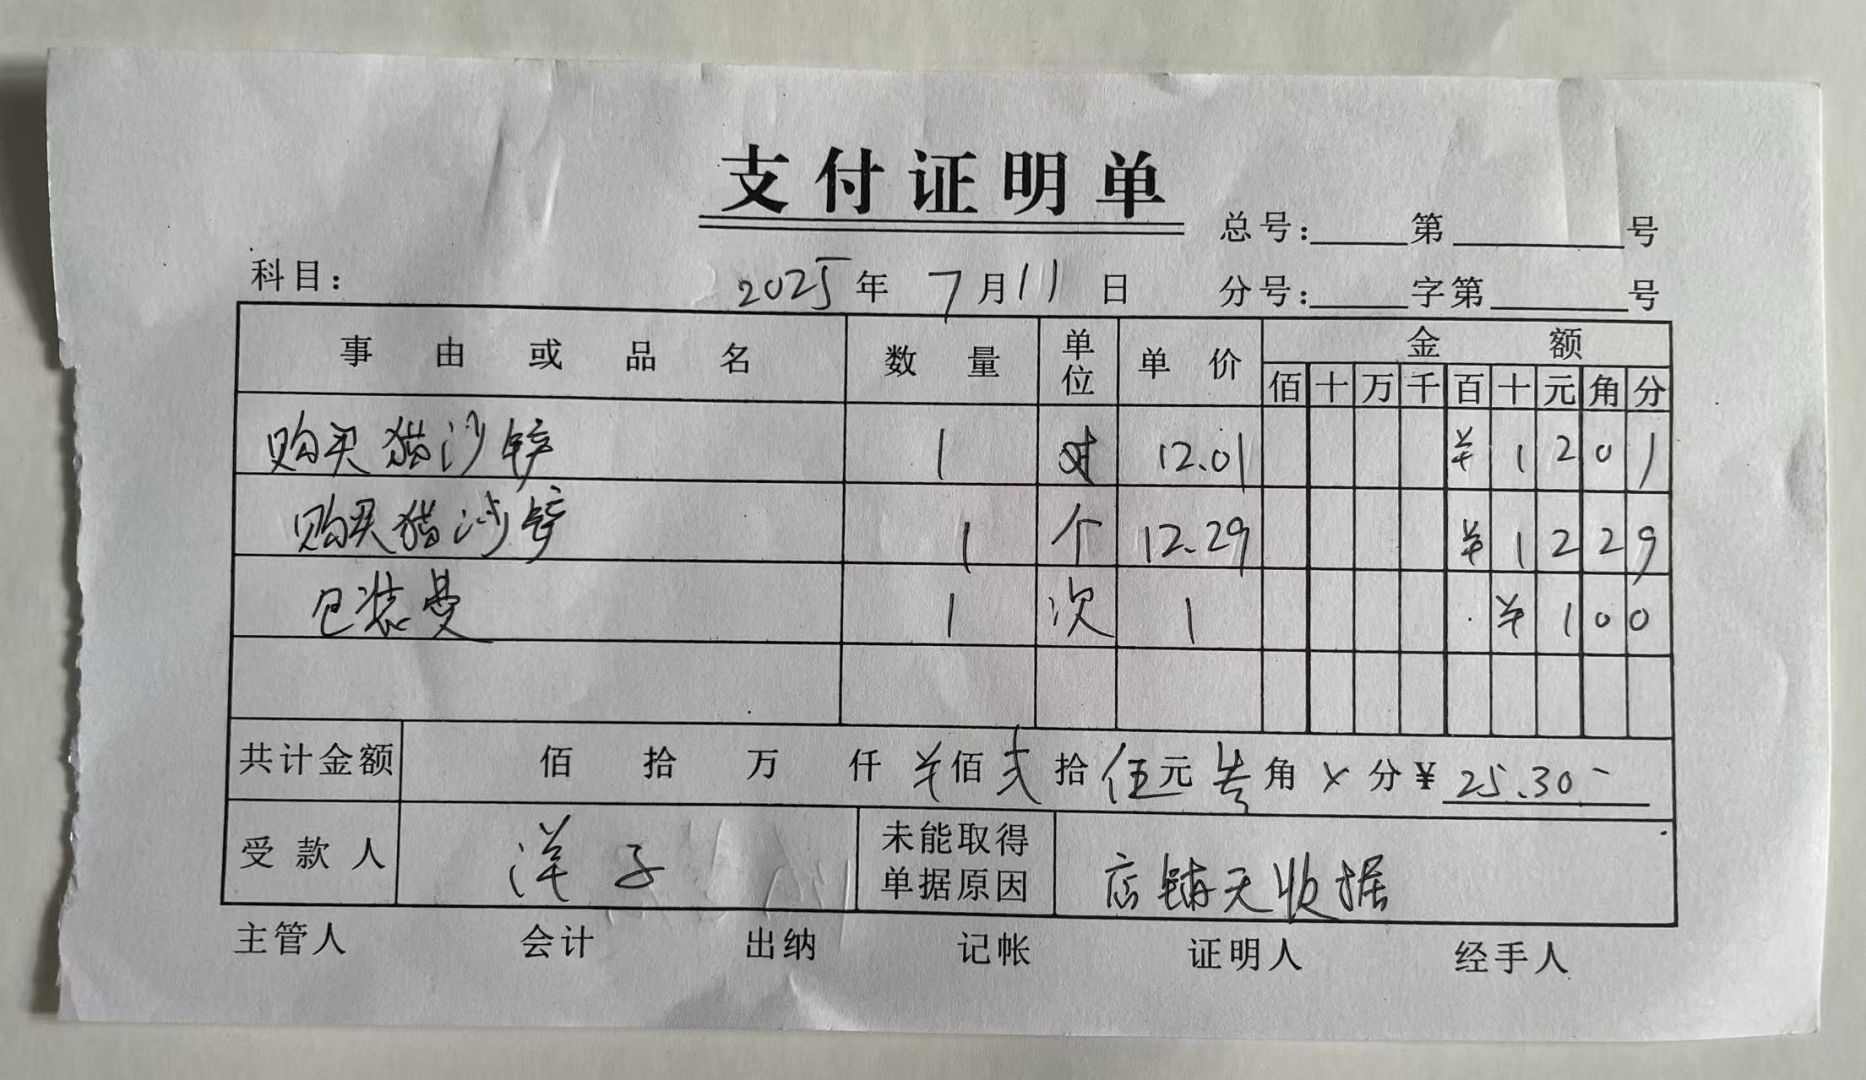 支付证明单
总号：____第________号
科目： 2025年 7月11日 分号：____字第______号
事由或品名 数量 单位 单价 金额
佰 十 万 千 百 十 元 角 分
购买猫沙铲 1 对 12.01 ¥ 1 2 0 1
购买猫沙铲 1 个 12.29 ¥ 1 2 2 9
包装费 1 次 1 ¥ 1 0 0
共计金额 佰 拾 万 仟 ¥佰 弍拾 伍元 角 分 ¥25.30
受款人 洋子 未能取得单据原因 店铺无收据
主管人 会计 出纳 记帐 证明人 经手人